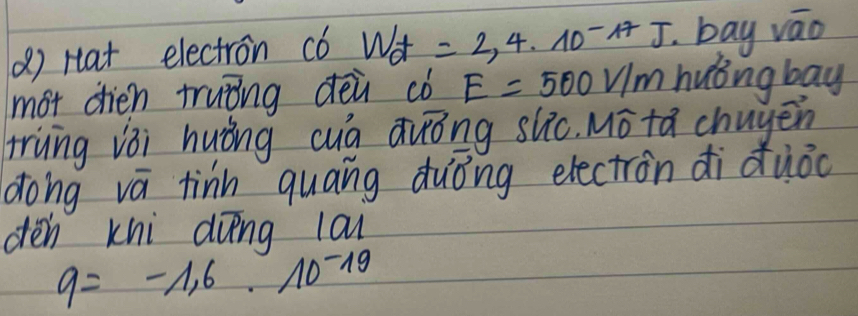 2) Hạt electrôn có Wđ = 2,4. 10⁻¹⁷ J. bay vào
một điện trường đều có E = 500 V/m hướng bay
trùng với hướng của đường sức. Mô tả chuyển
động và tính quãng đường electrôn đi được
đến khi dừng lại
q = -1,6 . 10⁻¹⁹